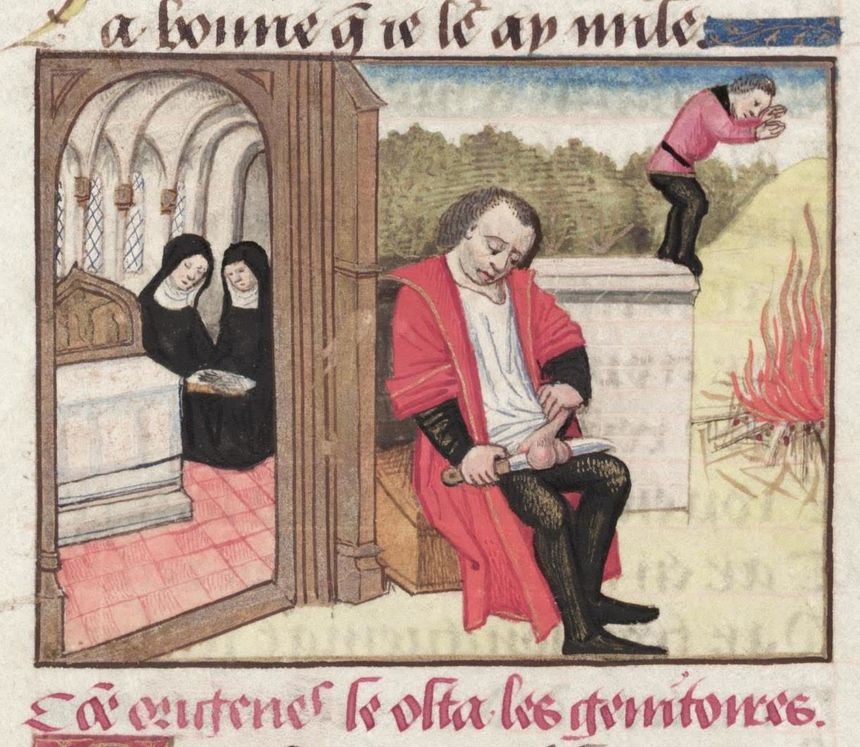 a bonne q̃ ie lẽ ay miſe.
Cõe origenes ſe oſta les genitoires.